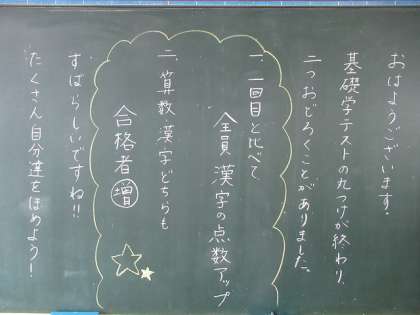 おはようございます。
基礎学テストの丸つけが終わり、
二つおどろくことがありました。
一、一回目と比べて
全員漢字の点数アップ
二、算数漢字どちらも
合格者増
すばらしいですね!!
たくさん自分達をほめよう!